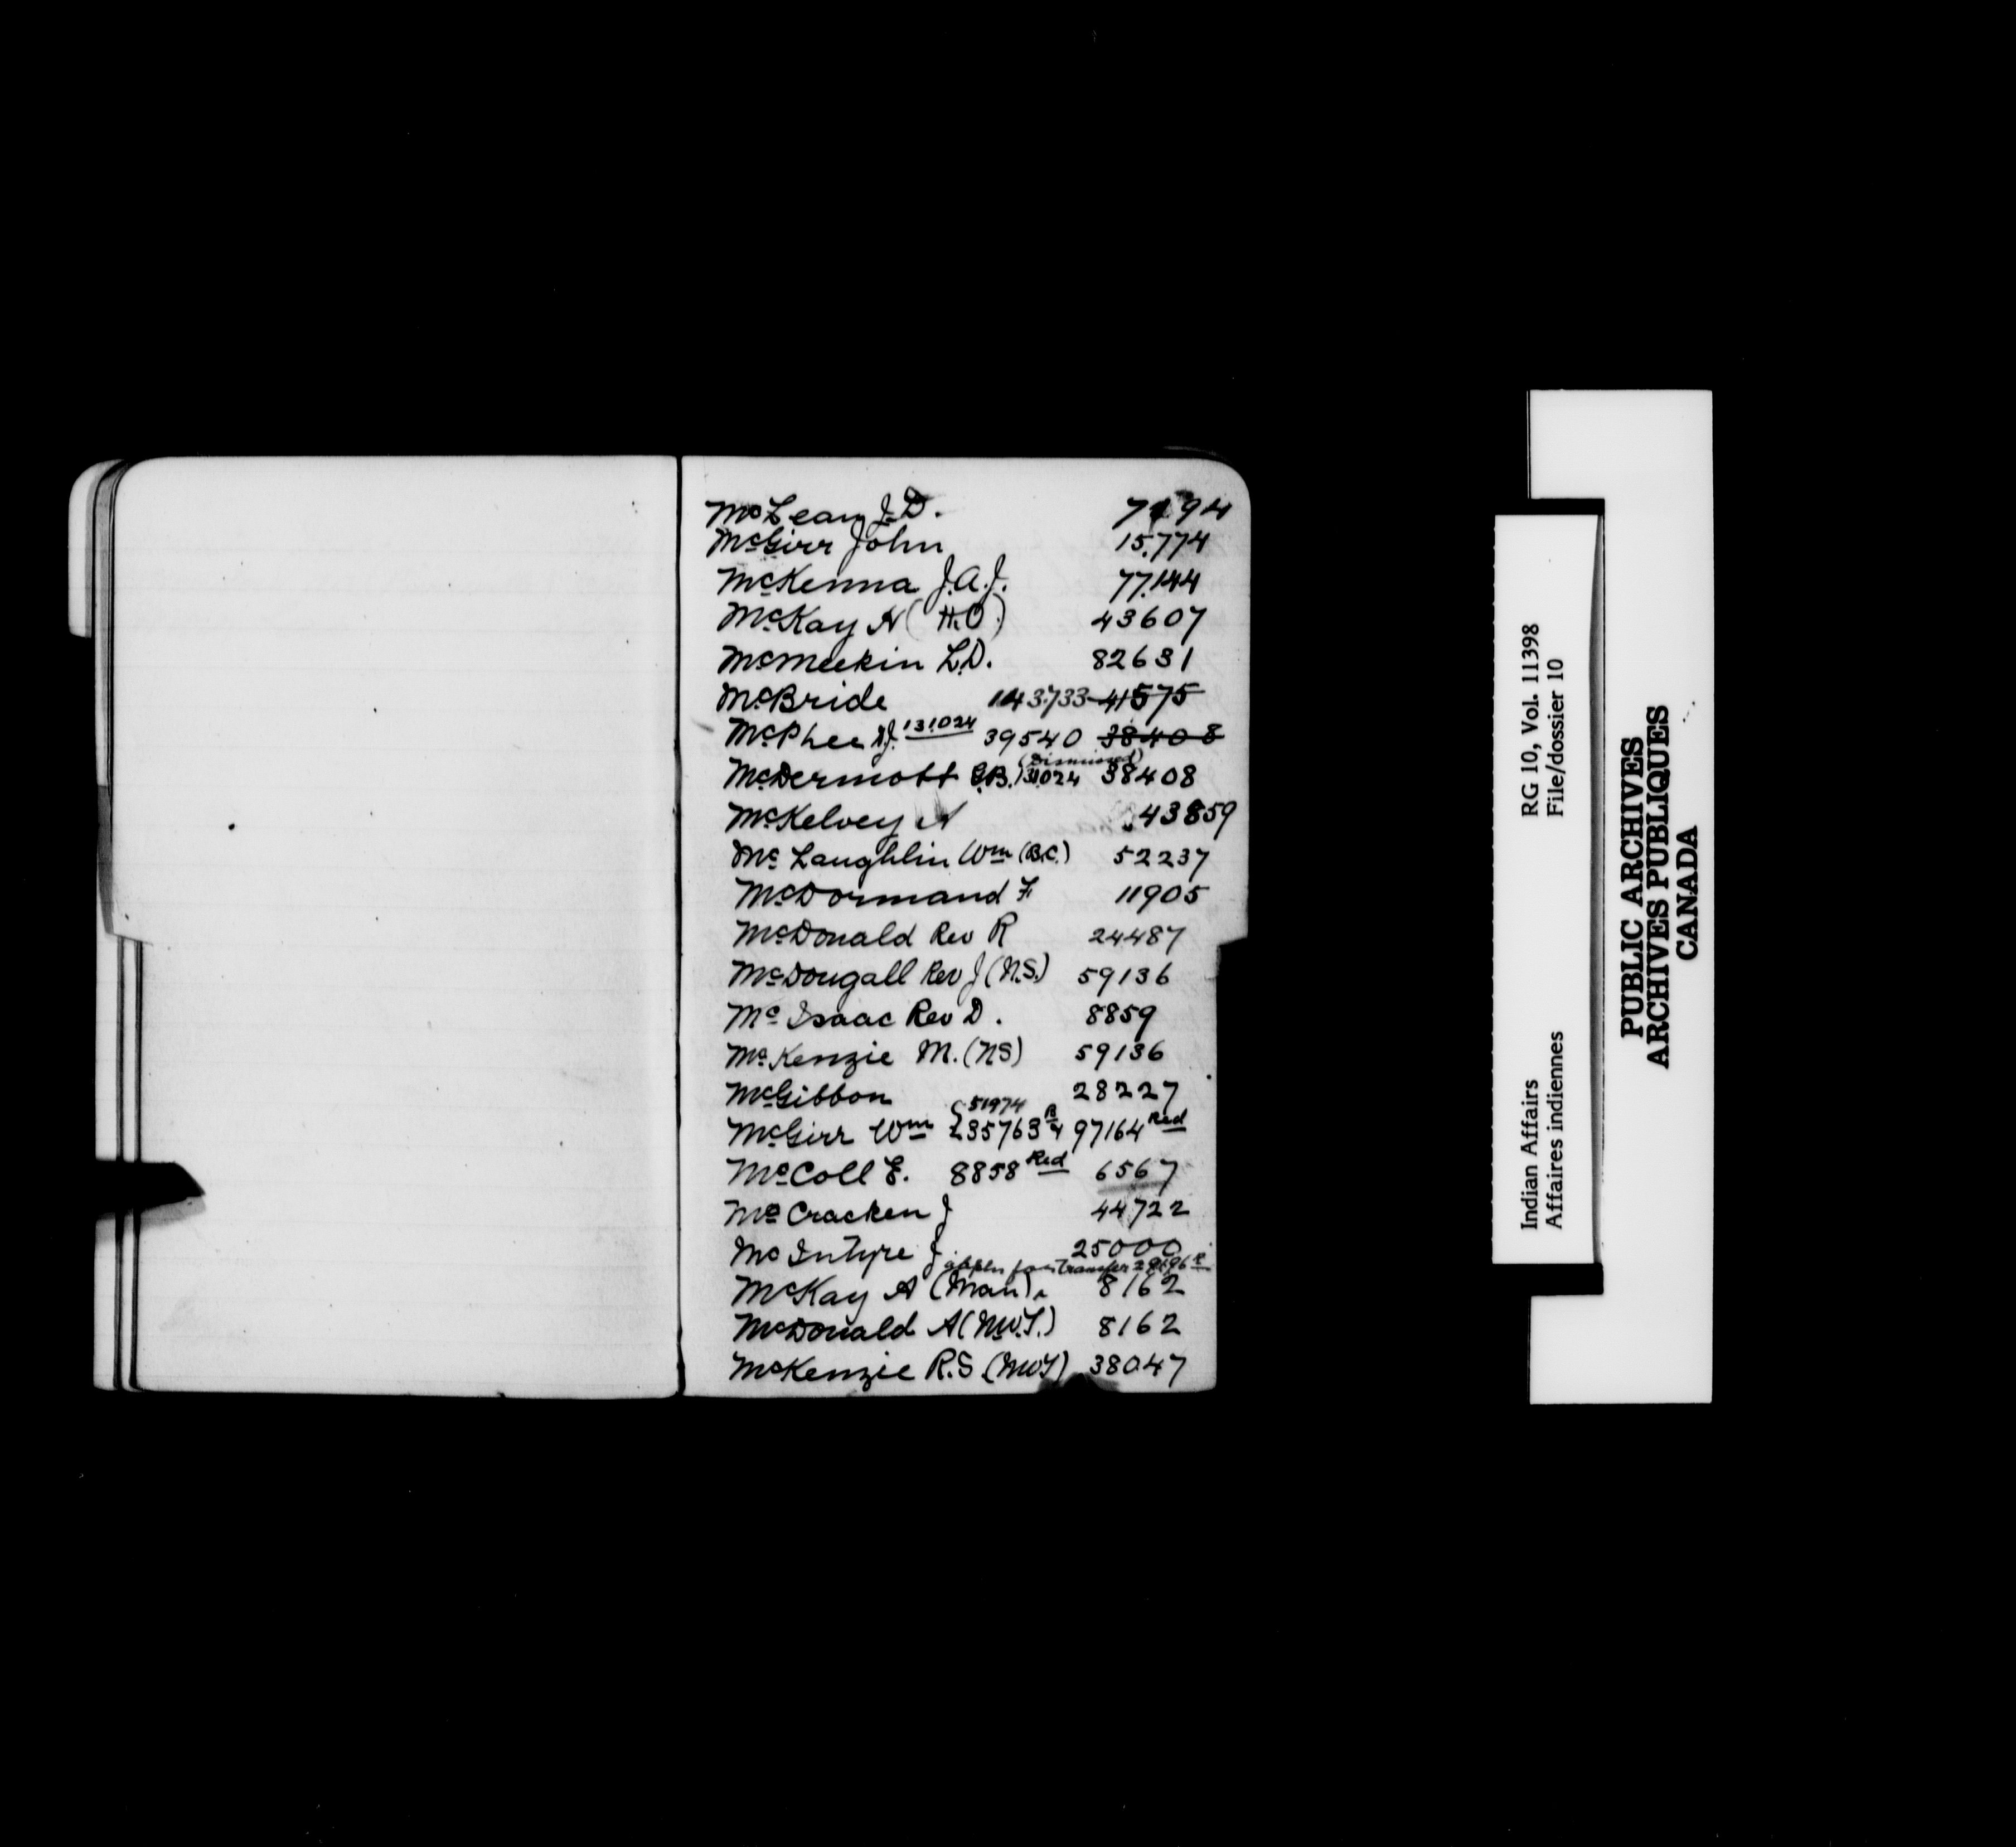 McLean J.D. 7194
McGirr John 15.774
McKenna J.A.J. 77.144
McKay N (H.O.) 43607
McMeekin L.D. 82631
McBride 143733 41575
McPhee D.J. 131024 39540 38408
(Dismissed)
McDermott G.B. 131024 38408
McKelvey A 43859
McLaughlin Wm (B.C.) 52237
McDormand F 11905
McDonald Rev R 24487
McDougall Rev J (N.S.) 59136
McIsaac Rev D. 8859
McKenzie M. (NS) 59136
McGibbon 28227
51974
McGirr Wm 235763 R & 97164 Red
McColl E. 8858 Red 6567
McCracken J 44722
McIntyre J 25000
appln for transfer
McKay A (Man). 8162
McDonald A (N.W.T.) 8162
McKenzie R.S (NWT) 38047
Indian Affairs RG 10, Vol. 11398
Affaires indiennes File/dossier 10
PUBLIC ARCHIVES
ARCHIVES PUBLIQUES
CANADA